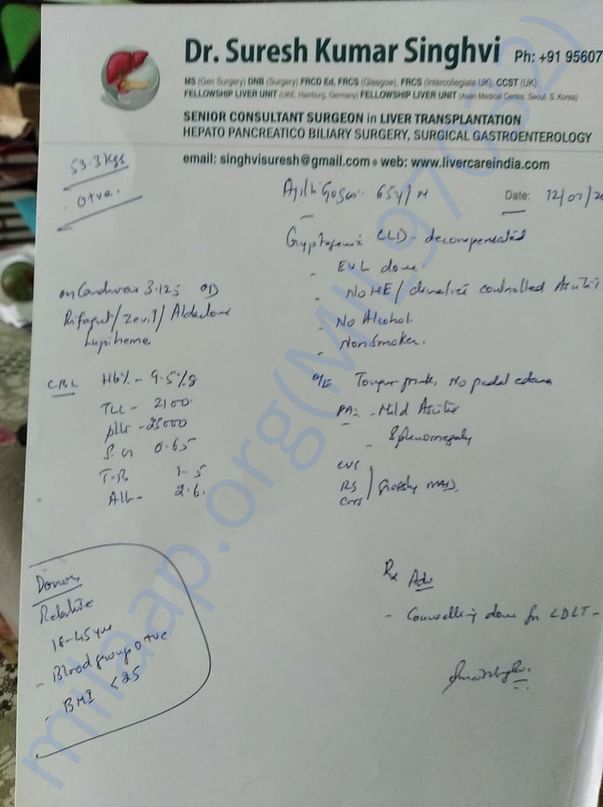 Dr. Suresh Kumar Singhvi Ph: +91 95607
MS (Gen Surgery) DNB (Surgery) FRCD Ed, FRCS (Glasgow), FRCS (Intercollegiate UK), CCST (UK)
FELLOWSHIP LIVER UNIT (UKE, Hamburg, Germany) FELLOWSHIP LIVER UNIT (Asan Medical Centre, Seoul, S. Korea)
SENIOR CONSULTANT SURGEON in LIVER TRANSPLANTATION
HEPATO PANCREATICO BILIARY SURGERY, SURGICAL GASTROENTEROLOGY
email: singhvisuresh@gmail.com • web: www.livercareindia.com
53.3 kgs
O+ve.
65y/M
Date: 12/07/20
Cryptogenic CLD - decompensated
- EVL done.
- No HE / diuretic controlled Ascites
- No Alcohol.
- Non smoker.
on Cardivas 3.125 OD
Rifagut/Zevit/Aldactone
CBC Hb% - 9.5%g
TLC - 2100
plt - 25000
S.cr 0.65
T.B 1.5
Alb - 2.6.
O/E No pedal edema
PA: - Mild Ascites
- Splenomegaly
CVS
RS
CNS
Grossly NAD.
Donor
Relative
18-45 yrs
- Blood group O+ve
- BMI <25
Rx Adv
- Counselling done for LDLT -
milaap.org(MILI970932)